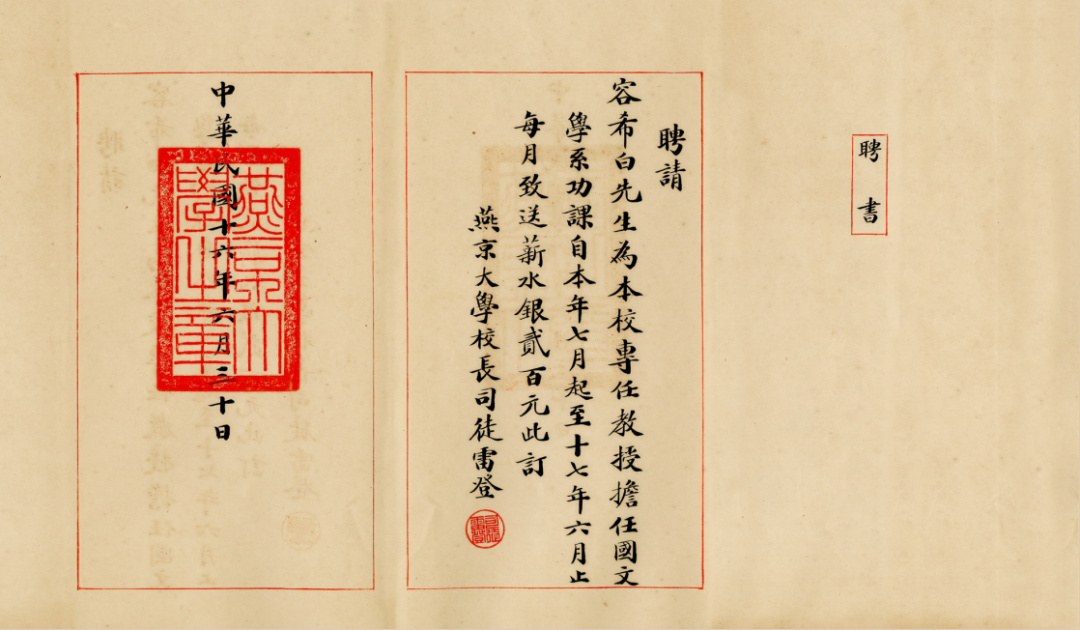 聘書
聘請
容希白先生為本校專任教授擔任國文
學系功課自本年七月起至十七年六月止
每月致送薪水銀貳百元此訂
燕京大學校長司徒雷登
中華民國十六年六月三十日
燕京大
學之章